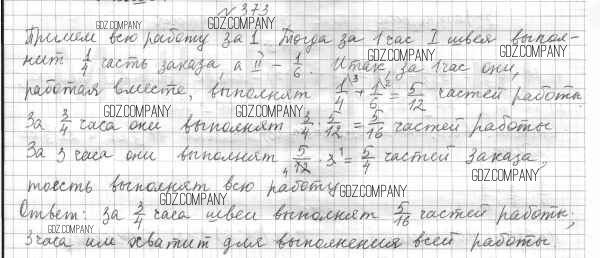 № 373
Примем всю работу за 1. Тогда за 1 час I швея выпол-
нит 1/4 часть заказа, а II – 1/6. Итак, за 1 час они,
работая вместе, выполнят 1/4 ³ + 1/6 ² = 5/12 частей работы.
За 3/4 часа они выполнят 3/4 · 5/12 = 5/16 частей работы.
За 3 часа они выполнят 5/12 ₄ · 3 ¹ = 5/4 частей заказа,
тоесть выполнят всю работу.
Ответ: за 3/4 часа швеи выполнят 5/16 частей работы;
3 часа им хватит для выполнения всей работы
GDZ.COMPANY
GDZ.COMPANY
GDZ.COMPANY
GDZ.COMPANY
GDZ.COMPANY
GDZ.COMPANY
GDZ.COMPANY
GDZ.COMPANY
GDZ.COMPANY
GDZ.COMPANY